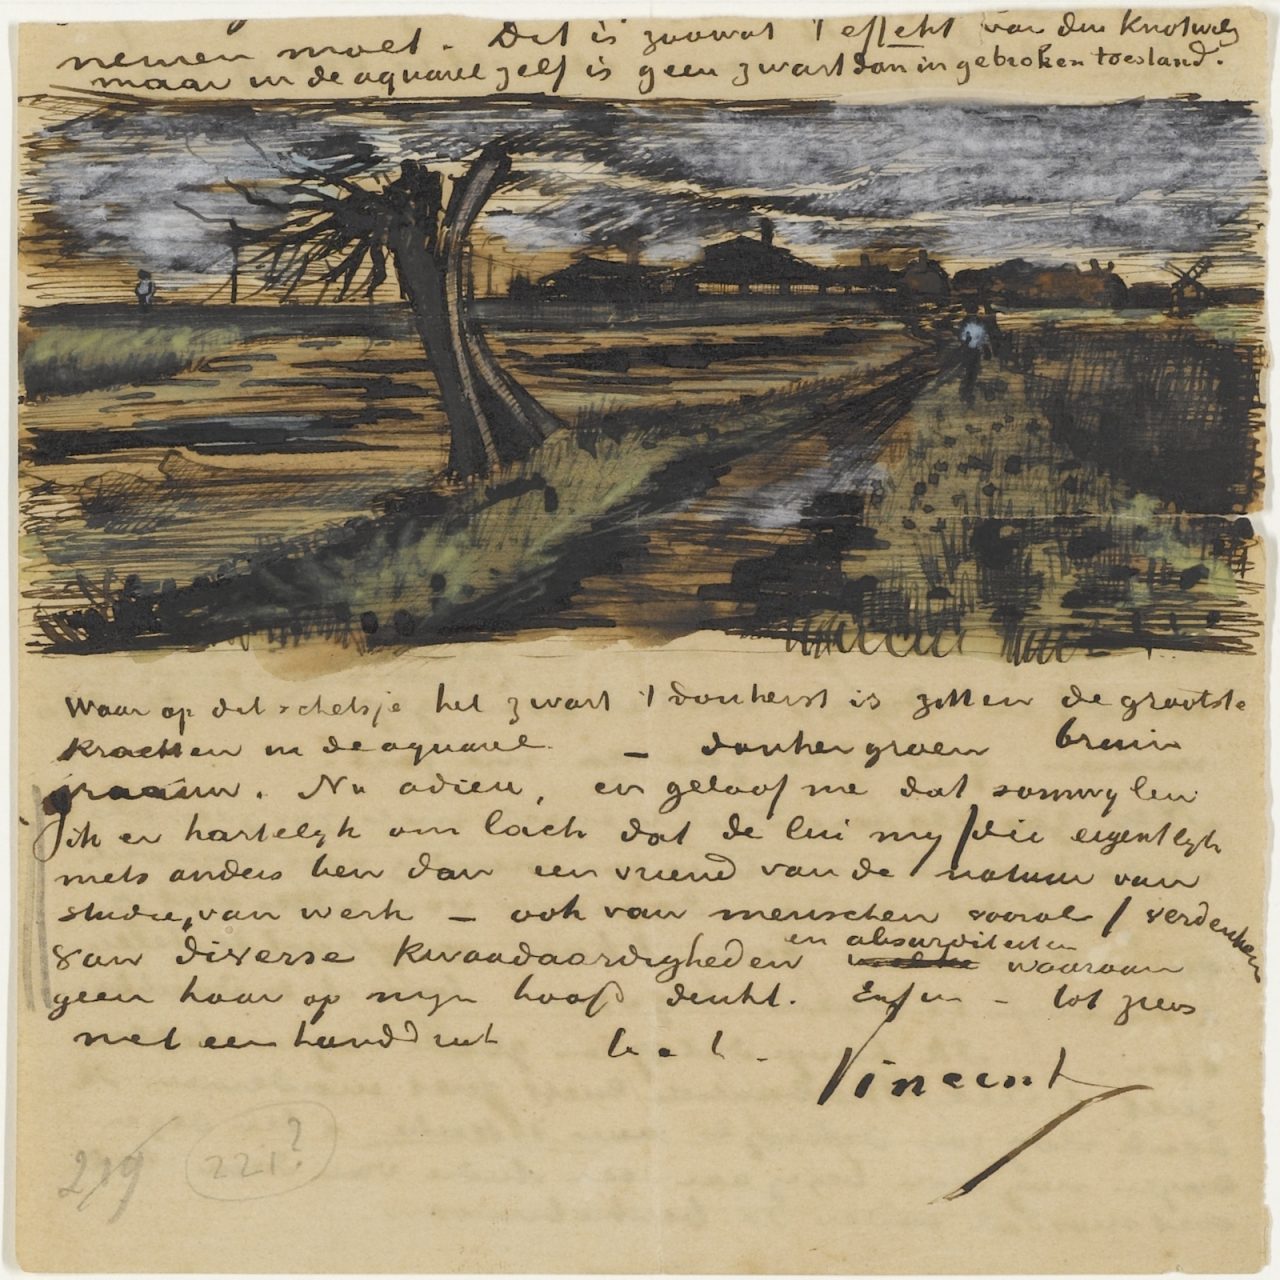 nemen moet. Dit is zoowat 't effekt van den Knotwilg
maar in de aquarel zelf is geen zwart dan in gebroken toestand.
Waar op dit schetsje het zwart 't donkerst is zitten de grootste
krachten in de aquarel – donkergroen bruin
graauw. Nu adieu, en geloof me dat somwylen
ik er hartelyk om lach dat de lui my /die eigentlyk
niets anders ben dan een vriend van de natuur van
studie, van werk – ook van menschen vooral / verdenken
van diverse kwaadaardigheden en absurditeiten waaraan
geen haar op myn hoofd denkt. Enfin – tot ziens
met een handdruk t. à t.
Vincent
219 221?